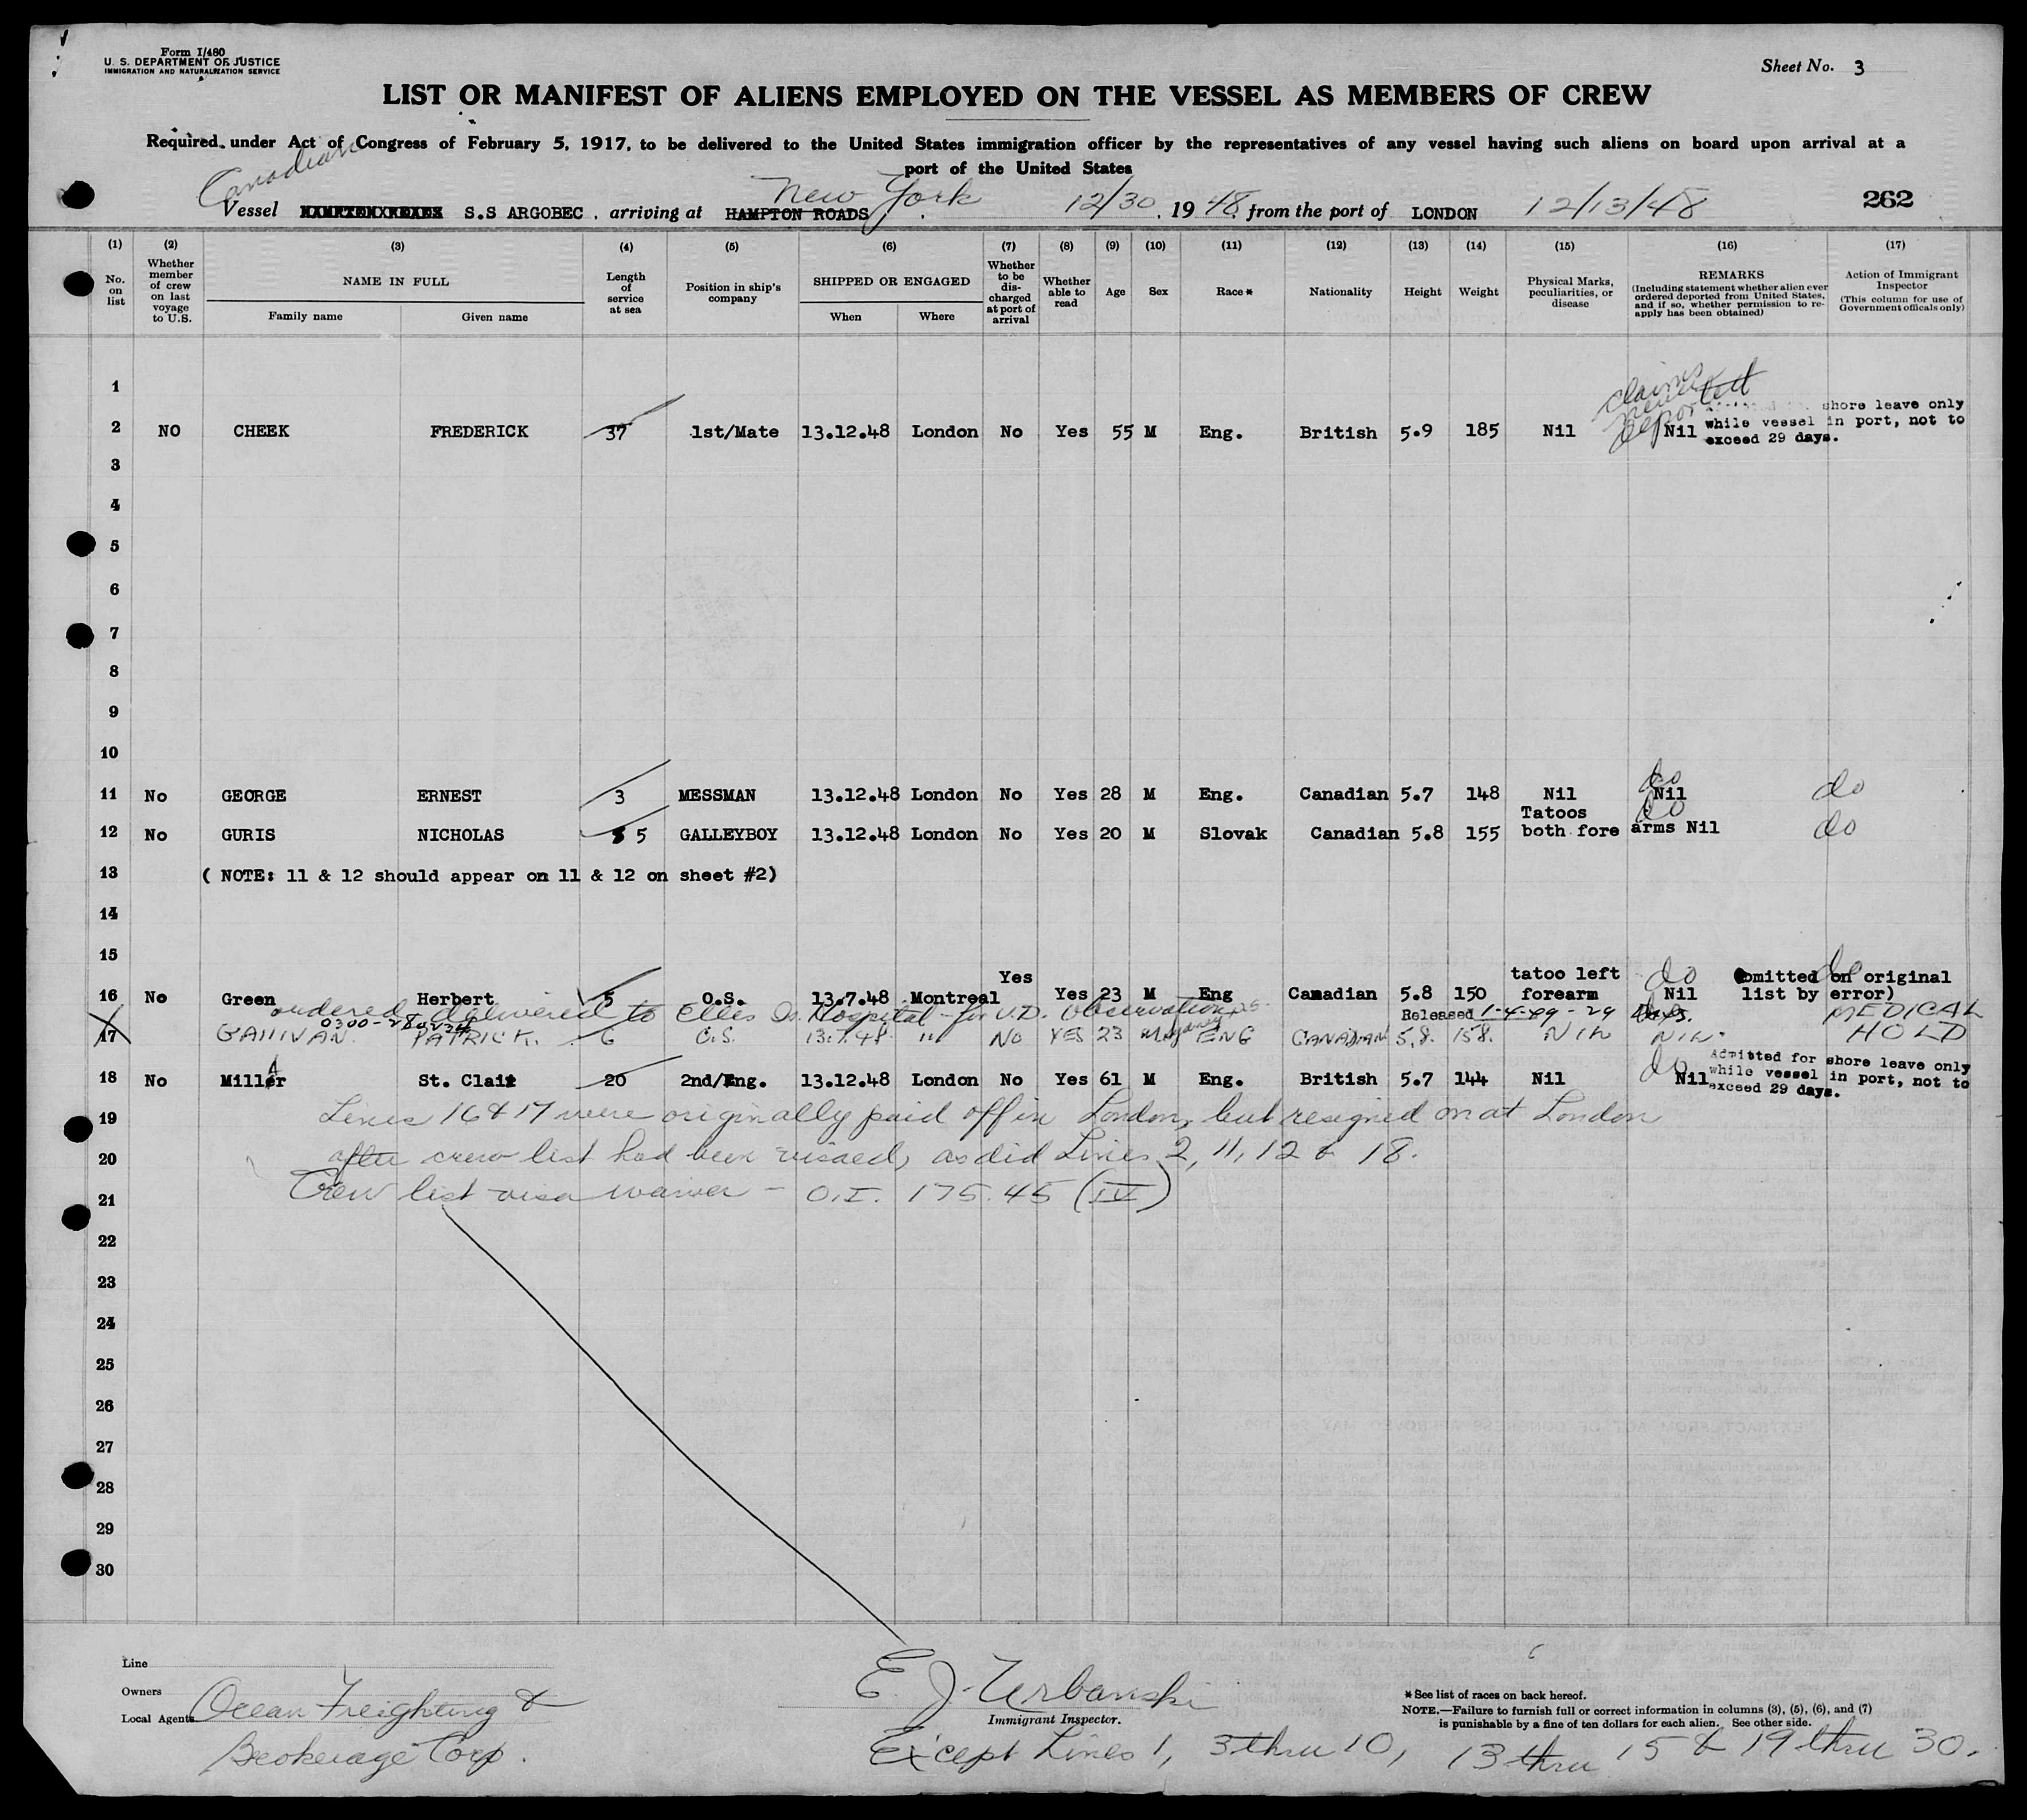 Form I/480
U. S. DEPARTMENT OF JUSTICE
IMMIGRATION AND NATURALIZATION SERVICE
Sheet No. 3
LIST OR MANIFEST OF ALIENS EMPLOYED ON THE VESSEL AS MEMBERS OF CREW
Required under Act of Congress of February 5, 1917, to be delivered to the United States immigration officer by the representatives of any vessel having such aliens on board upon arrival at a
port of the United States
Canadian
Vessel S.S ARGOBEC, arriving at HAMPTON ROADS New York 12/30, 1948 from the port of LONDON 12/13/48 262
(1) (2) (3) (4) (5) (6) (7) (8) (9) (10) (11) (12) (13) (14) (15) (16) (17)
No. on list
Whether member of crew on last voyage to U.S.
NAME IN FULL
Family name Given name
Length of service at sea
Position in ship's company
SHIPPED OR ENGAGED
When Where
Whether to be discharged at port of arrival
Whether able to read
Age
Sex
Race*
Nationality
Height
Weight
Physical Marks, peculiarities, or disease
REMARKS
(Including statement whether alien ever ordered deported from United States, and if so, whether permission to reapply has been obtained)
Action of Immigrant Inspector
(This column for use of Government officials only)
1
claims never deported
2 NO CHEEK FREDERICK 37 1st/Mate 13.12.48 London No Yes 55 M Eng. British 5.9 185 Nil Nil shore leave only
while vessel in port, not to
exceed 29 days.
3
4
5
6
7
8
9
10
11 No GEORGE ERNEST 3 MESSMAN 13.12.48 London No Yes 28 M Eng. Canadian 5.7 148 Nil do Nil do
12 No GURIS NICHOLAS 5 GALLEYBOY 13.12.48 London No Yes 20 M Slovak Canadian 5.8 155 Tatoos both fore arms Nil do do
13 ( NOTE: 11 & 12 should appear on 11 & 12 on sheet #2)
14
15
16 No Green Herbert 5 O.S. 13.7.48 Montreal Yes Yes 23 M Eng Canadian 5.8 150 tatoo left forearm do Nil do omitted on original
list by error)
ordered delivered to Ellis Is. Hospital - for V.D. Observation
Released 1-4-49 - 29 days.
MEDICAL
HOLD
17 GALLIVAN PATRICK. 6 O.S. 13.7.48 " No YES 23 M ENG CANADIAN 5.8. 158. NIL NIL
18 No Miller St. Clair 20 2nd/Eng. 13.12.48 London No Yes 61 M Eng. British 5.7 144 Nil do Nil Admitted for shore leave only
while vessel in port, not to
exceed 29 days.
19 Lines 16 & 17 were originally paid off in London, but resigned on at London
20 after crew list had been visaed, as did Lines 2, 11, 12 & 18.
21 Crew list visa waiver - O.I. 175.45 (IV)
22
23
24
25
26
27
28
29
30
Line
Owners
Local Agents Ocean Freighting &
Brokerage Corp.
E. J. Urbanski
Immigrant Inspector.
Except Lines 1, 3 thru 10, 13 thru 15 & 19 thru 30.
* See list of races on back hereof.
NOTE.—Failure to furnish full or correct information in columns (3), (5), (6), and (7)
is punishable by a fine of ten dollars for each alien. See other side.